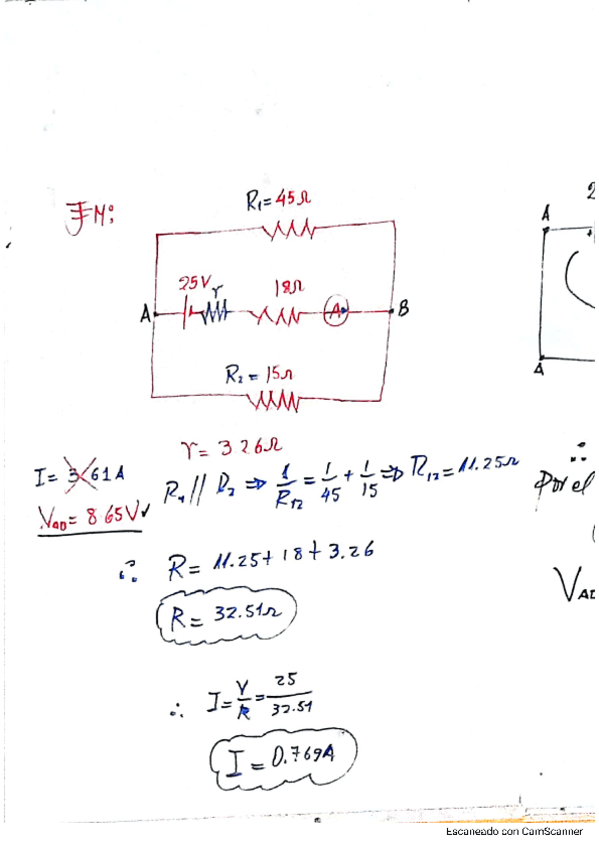 R₁=45Ω
FM:
25V r 18Ω
A A B
R₂ = 15Ω
r = 3.26Ω
I= 3.61A
R₁ // R₂ ⇒ 1/R₁₂ = 1/45 + 1/15 ⇒ R₁₂=11.25Ω
V_AD = 8.65V ✓
∴ R= 11.25+18+3.26
R= 32.51Ω
∴ I= V/R = 25/32.51
I = 0.769A
2
A
A
∴
Por el
V_AD
Escaneado con CamScanner